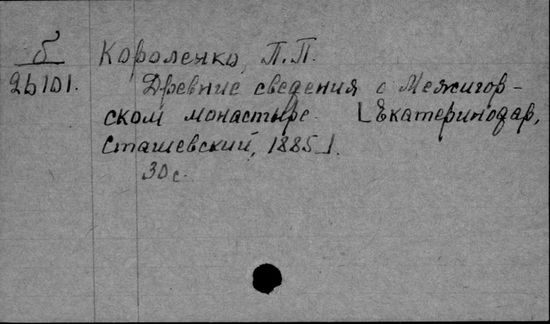 б
26101.
Короленко, П.П.
Древние сведения о Межигор-
ском монастыре. [Екатеринодар,
Сташевский, 1885].
30 с.